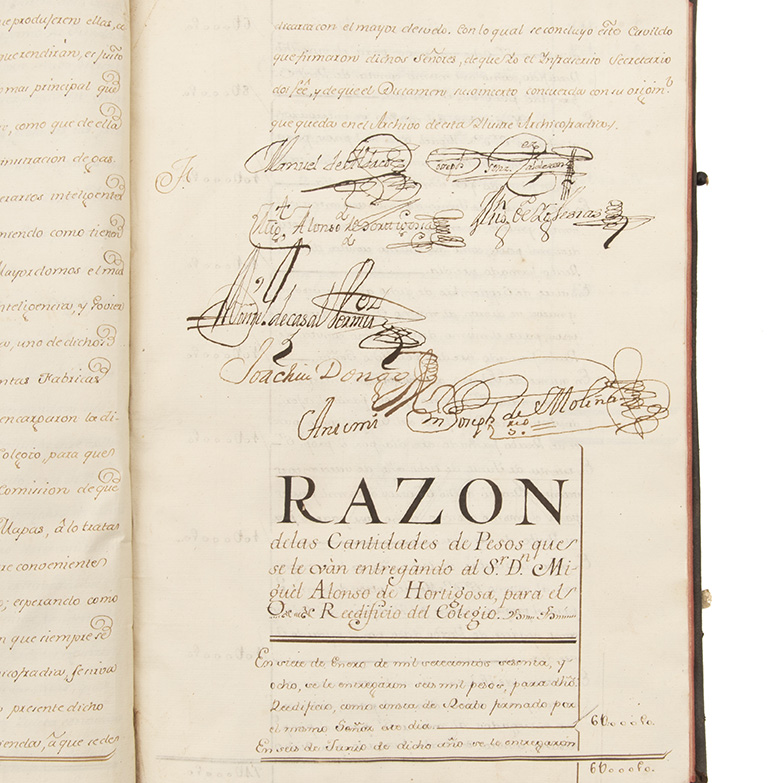 ue produseren ellas, se
que rendirán, es justo
mas principal que
e, como que de ella
ministracion de gas
erarios inteligentes
niendo como tienen
Mayordomos el mas
nteligencia, y
a, uno de dichos
ntas Fabricas
encargaron la di
Colegio, para que
Comicion de que
Mapas, â lo tratas
re convenientes
o; esperando como
n que siempre se
cofradia, se sirva
o presente dicho
renda, â que se des
con el mayor desvelo. Con lo qual se concluyo este Cavildo
que firmaron dichos Señores, de que Yo el Infrascrito Secretario
doi feê, y de que el Dictamen suso incerto concuerda con su origin.l
que queda en el Archivo de esta Illustre Archicofradia.
Manuel de
Joseph Gonz. Calderon
Mig. Alonso de Hortigosa
de Iglesias
de Casal Bermu dez
Joachin Dongo
Antemi
Joseph de Molina
RAZON
de las Cantidades de Pesos que
se le ván entregàndo al S.r D.n Mi-
guèl Alonso de Hortigosa, para el
Reedificio del Colegio.
En siete de Enero de mil setecientos sesenta, y
ocho, se le entregaron seis mil pesos, para dhõ
Reedificio, como consta de Recibo firmado por
el mismo Señor este dia
6U000 ps.
En seis de Junio de dicho año se le entregaron
6U000 ps.